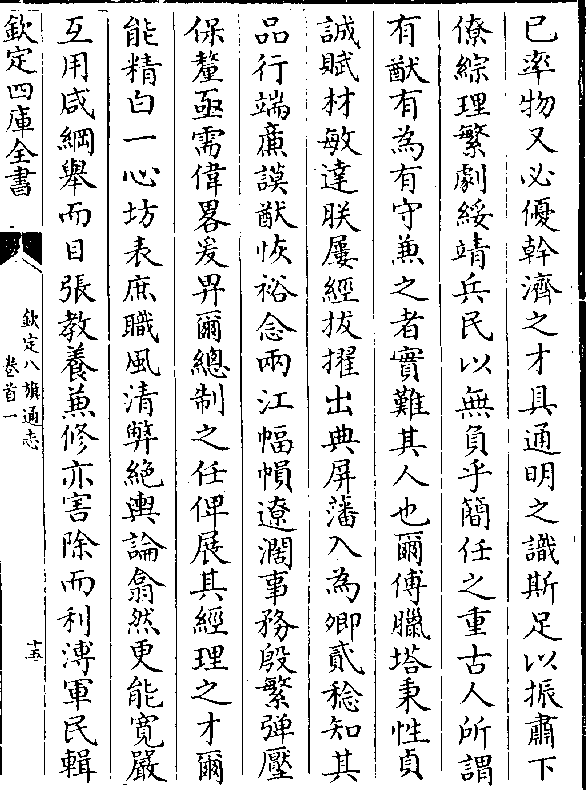 已率物又必優幹濟之才具通明之識斯足以振肅下
僚綜理繁劇綏靖兵民以無負乎簡任之重古人所謂
有猷有為有守兼之者實難其人也爾傅臘塔秉性貞
誠賦材敏達朕屢經拔擢出典屏藩入為卿貳稔知其
品行端亷謨猷恢裕念兩江幅幀遼濶事務殷繁彈壓
保釐亟需偉畧爰畀爾總制之任俾展其經理之才爾
能精白一心坊表庶職風清弊絶輿論翕然更能寛嚴
互用咸綱舉而目張教養兼修亦害除而利溥軍民輯
欽定四庫全書
欽定八旗通志
卷首一
十五